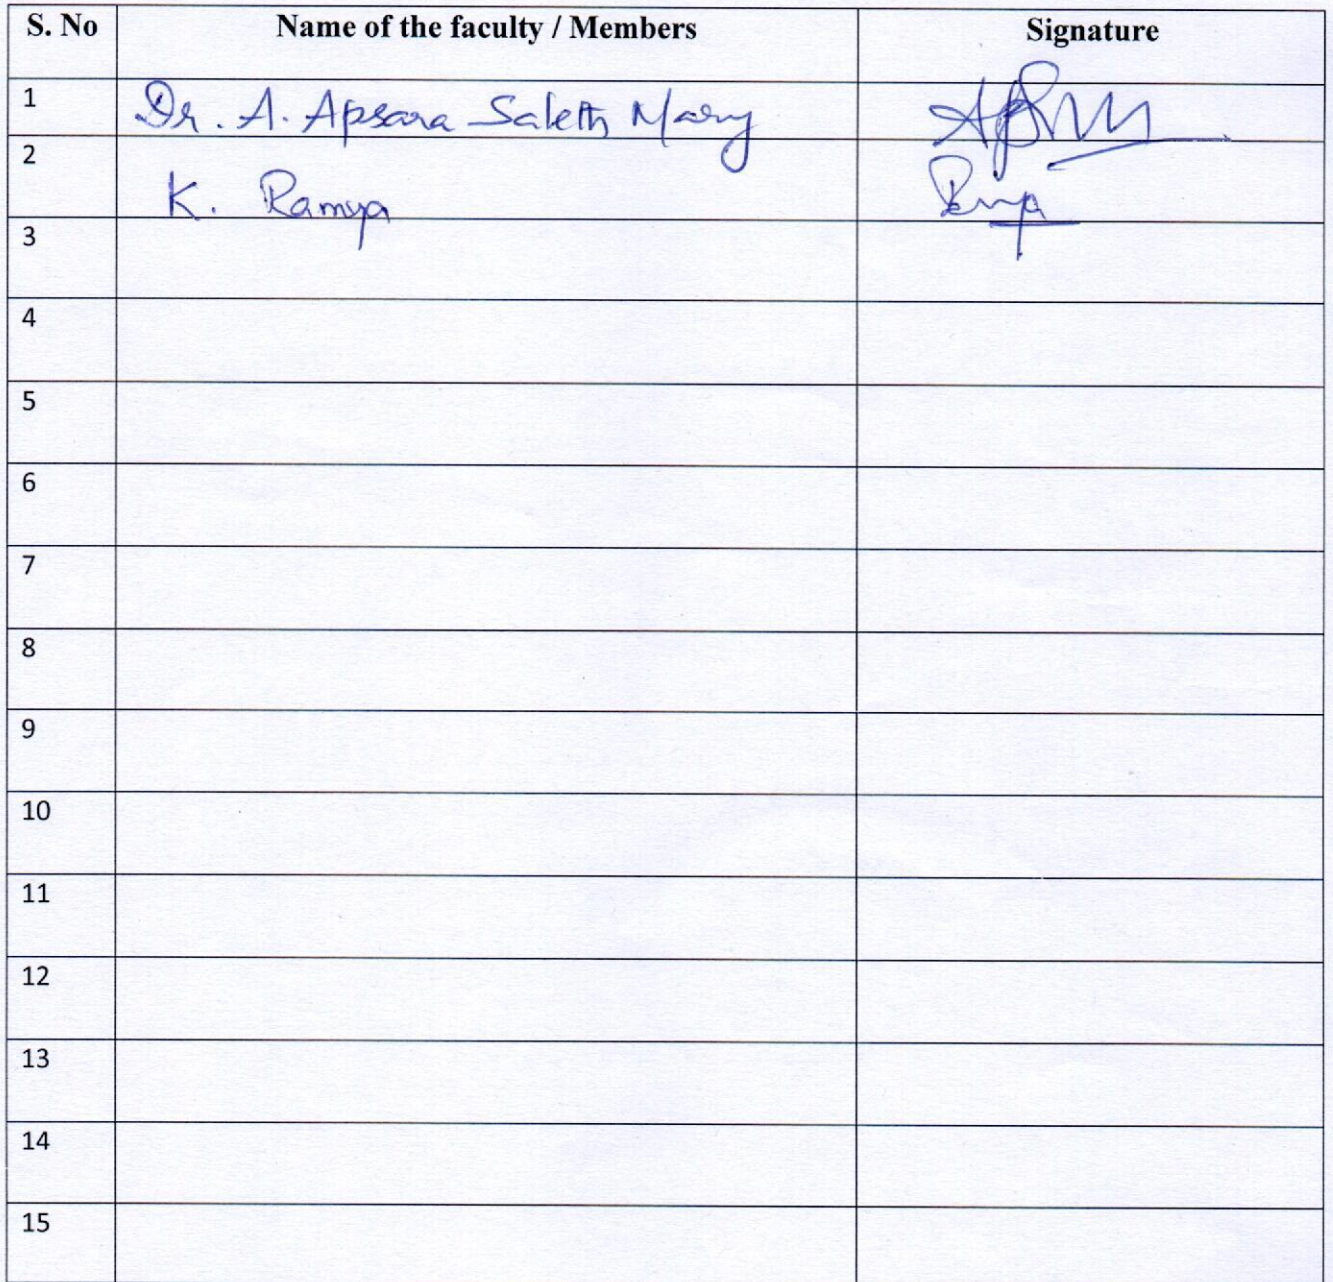 S. No Name of the faculty / Members Signature
1 Dr. A. Apsara Saleth Mary
2 K. Ramya
3
4
5
6
7
8
9
10
11
12
13
14
15